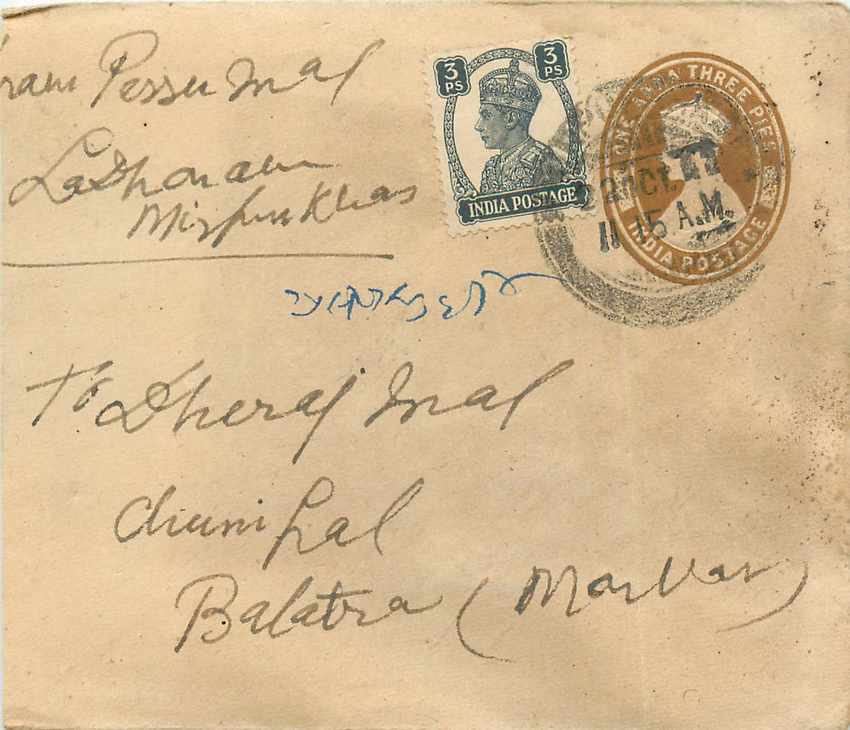 Pessu Mal
Ladhoram
Mirpurkhas
3 PS
3 PS
INDIA POSTAGE
ONE ANNA THREE PIES
INDIA POSTAGE
OCT.
11 15 A.M.
To Dheraj Mal
Chuni Lal
Balatra (Marwar)